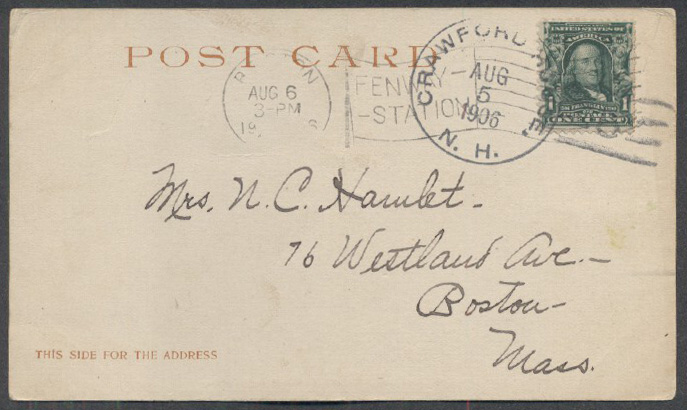 POST CARD
CRAWFORD HOUSE
AUG
5
1906
N. H.
BOSTON
AUG 6
3-PM
19 6
FENWAY-
-STATION-
UNITED STATES OF
AMERICA
FRANKLIN
1 1
POSTAGE
ONE CENT
Mrs. N. C. Hamlet-
76 Westland Ave.-
Boston-
Mass.
THIS SIDE FOR THE ADDRESS